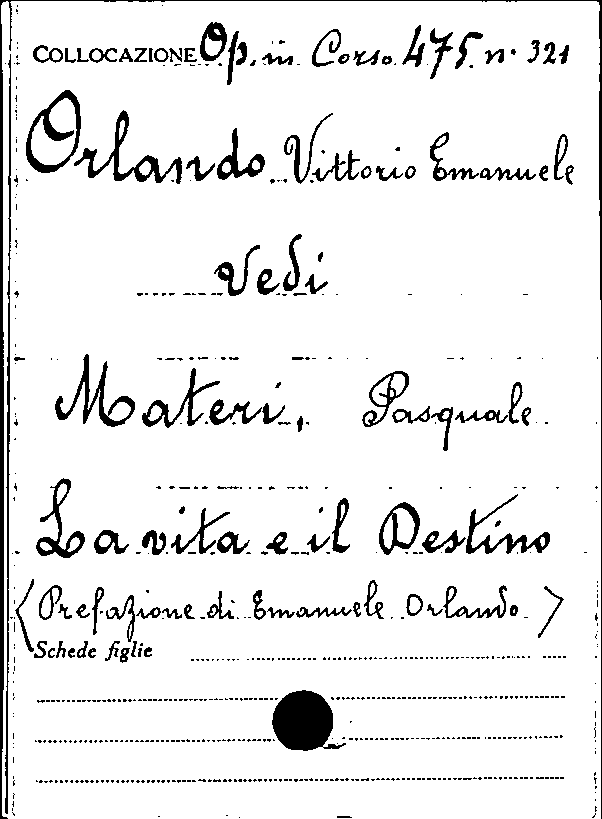 COLLOCAZIONE Op. in Corso 475 n. 321
Orlando Vittorio Emanuele
Vedi
Materi, Pasquale
La vita e il Destino
(Prefazione di Emanuele Orlando)
Schede figlie